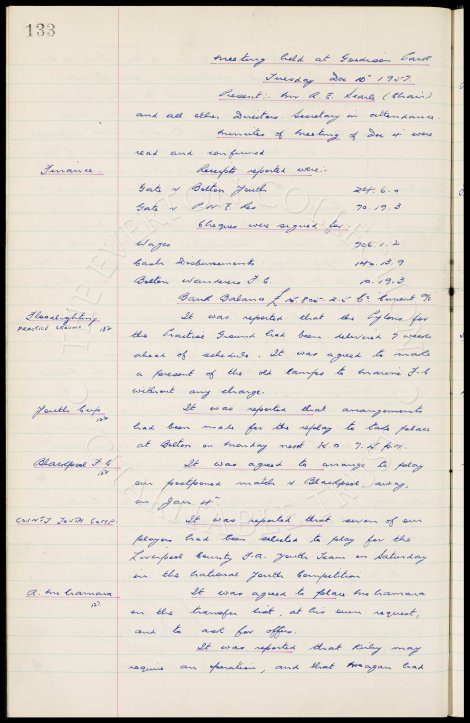 133
Meeting held at Goodison Park
Tuesday Dec 10th 1957.
Present:- Mr R. E. Searle (Chair)
and all other Directors. Secretary in attendance.
Minutes of Meeting of Dec 4th were
read and confirmed
Finance. Receipts reported were:-
Gate v Bolton Youth 24.6.0
Gate v P.N.E. Res 70.19.3
Cheques were signed for:-
Wages 706.1.2
Cash Disbursements 140.15.9
Bolton Wanderers F.C. 10.19.3
Bank Balance £ Current a/c
Floodlighting It was reported that the Pylons for
PRACTICE GROUND 132 the Practice Ground had been delivered 7 weeks
ahead of schedule. It was agreed to make
a present of the old lamps to Marine F.C.
without any charge.
Youth Cup. It was reported that arrangements
132 had been made for the replay to take place
at Bolton on Monday next K.O. 7.15 p.m.
Blackpool F.C. It was agreed to arrange to play
132 our postponed match v Blackpool, away,
on Jan 4th
COUNTY YOUTH COMP. It was reported that seven of our
players had been selected to play for the
Liverpool County F.A. Youth Team on Saturday
in the National Youth Competition
A. McNamara It was agreed to place McNamara
127 on the transfer list, at his own request,
and to ask for offers.
It was reported that Kirby may
require an operation, and that had
THE EVERTON COLLECTION
CHARITABLE TRUST